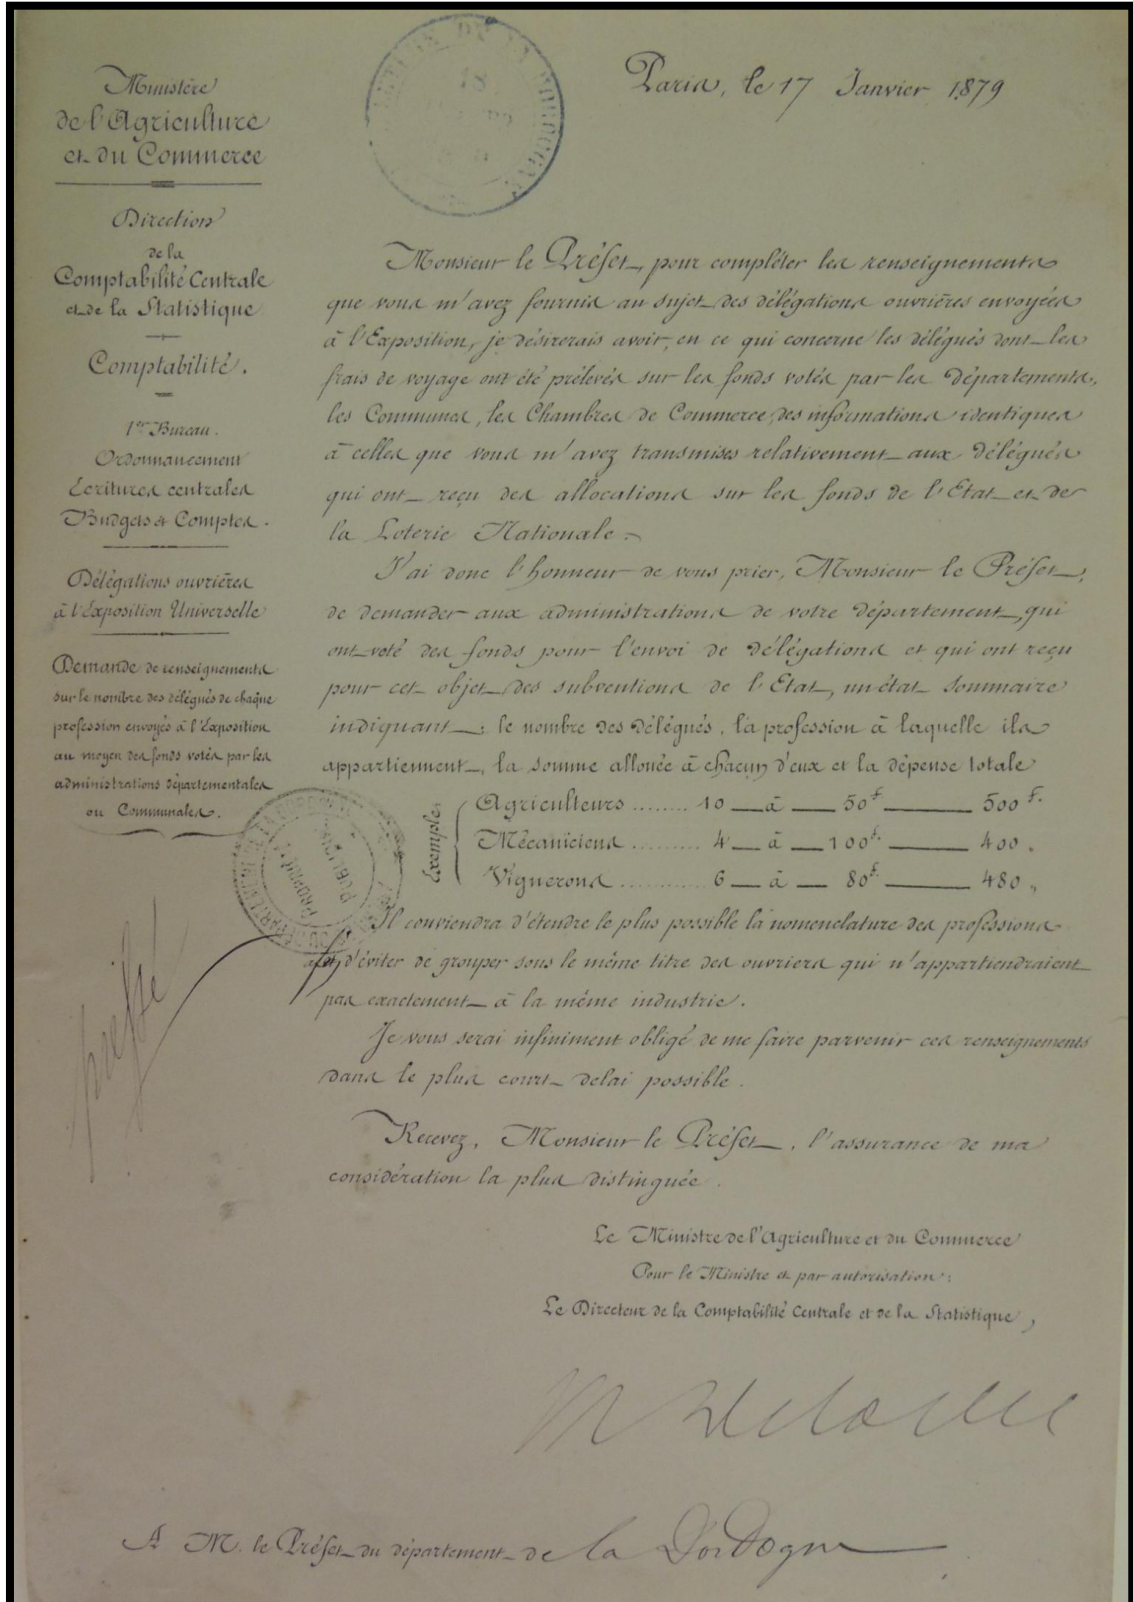 Ministère
de l'Agriculture
et du Commerce
Direction
de la
Comptabilité Centrale
et de la Statistique
Comptabilité.
1er Bureau.
Ordonnancement
Ecritures centrales
Budgets & Comptes.
Délégations ouvrières
à l'Exposition Universelle
Demande de renseignements
sur le nombre des délégués de chaque
profession envoyés à l'Exposition
au moyen des fonds votés par les
administrations départementales
ou Communales.
Paris, le 17 Janvier 1879
Monsieur le Préfet, pour compléter les renseignements
que vous m'avez fournis au sujet des délégations ouvrières envoyées
à l'Exposition, je désirerais avoir, en ce qui concerne les délégués dont les
frais de voyage ont été prélevés sur les fonds votés par les départements,
les Communes, les Chambres de Commerce, des informations identiques
à celles que vous m'avez transmises relativement aux délégués
qui ont reçu des allocations sur les fonds de l'Etat et de
la Loterie Nationale.
J'ai donc l'honneur de vous prier, Monsieur le Préfet,
de demander aux administrations de votre département, qui
ont voté des fonds pour l'envoi de délégations et qui ont reçu
pour cet objet des subventions de l'Etat, un état sommaire
indiquant: le nombre des délégués, la profession à laquelle ils
appartiennent, la somme allouée à chacun d'eux et la dépense totale
Exemple
Agriculteurs ........ 10 — à — 50f — 500f.
Mécaniciens ......... 4 — à — 100f. — 400.
Vignerons ........... 6 — à — 80f. — 480 „
Il conviendra d'étendre le plus possible la nomenclature des professions
afin d'éviter de grouper sous le même titre des ouvriers qui n'appartiendraient
pas exactement à la même industrie.
Je vous serai infiniment obligé de me faire parvenir ces renseignements
dans le plus court delai possible.
Recevez, Monsieur le Préfet, l'assurance de ma
considération la plus distinguée.
Le Ministre de l'Agriculture et du Commerce
Pour le Ministre et par autorisation:
Le Directeur de la Comptabilité Centrale et de la Statistique,
A M. le Préfet du département de la Dordogne